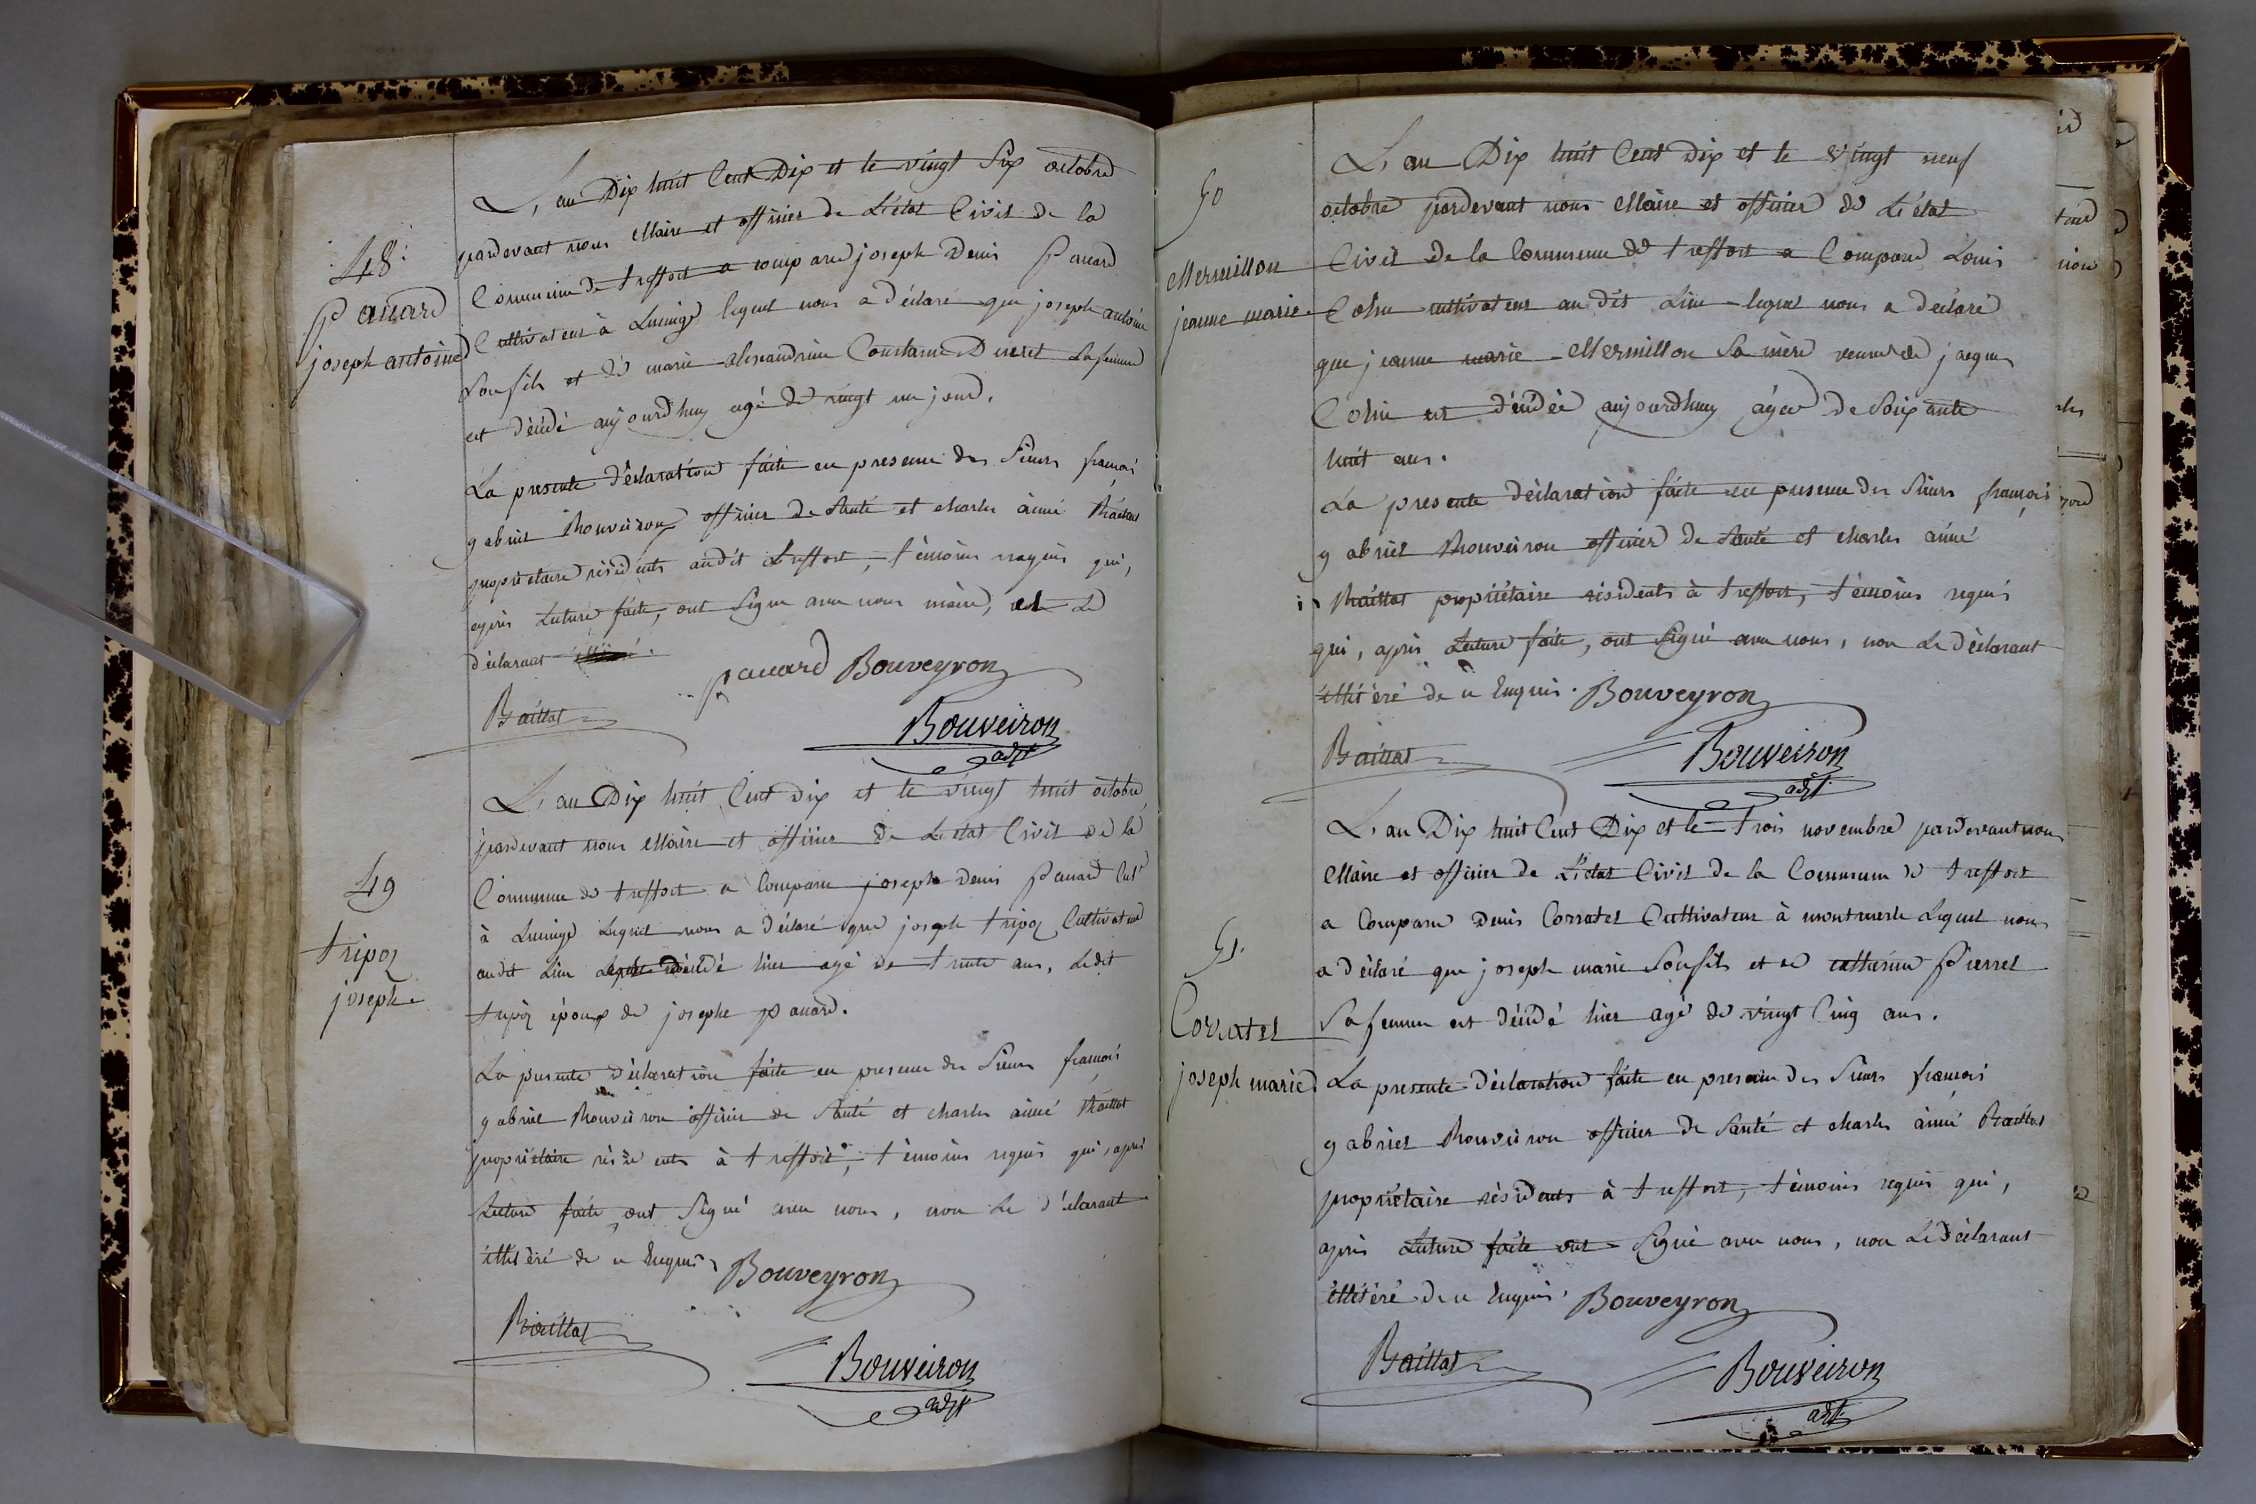 48.
Panard
joseph antoine
L'an Dix huit Cent Dix et le vingt Six octobre
pardevant nous Maire et officier de L'état Civil de la
Commune de treffort a comparu joseph Denis Panard
Cultivateur à Lucinge lequel nous a déclaré que joseph antoine
Son fils et de marie alexandrine Constance Ducret Sa femme
est décédé aujourd'huy agé de vingt un jour.
La presente déclaration faite en presence des Sieurs françois
gabriel Bouveiron officier de Santé et charles aimé Baillat
propriétaire résidents audit treffort, témoins requis qui,
après Lecture faite, ont Signé avec nous maire, et Le
déclarant
panard Bouveyron
Baillat
Bouveiron
adjt
49
tripoz
joseph
L'an Dix huit Cent dix et le vingt huit octobre
pardevant nous Maire et officier de L'état Civil de la
Commune de treffort a Comparu joseph Denis Panard Cult.r
à Lucinge Lequel nous a déclaré que joseph tripoz Cultivateur
audit Lieu décédé hier agé de trente ans, Ledit
tripoz époux de josephe panard.
La presente déclaration faite en presence des Sieurs françois
gabriel Bouveiron officier de Santé et charles aimé Baillat
propriétaire résidents à treffort, témoins requis qui, après
Lecture faite, ont Signé avec nous, non Le déclarant
illitéré de ce Enquis
Bouveyron
Baillat
Bouveiron
adjt
50
Mermillon
jeanne marie
L'an Dix huit Cent Dix et le vingt neuf
octobre pardevant nous Maire et officier de L'état
Civil de la Commune de treffort a Comparu Louis
Colin cultivateur au dit Lieu lequel nous a déclaré
que jeanne marie Mermillon Sa mère veuve de jacques
Colin est décédée aujourd'huy agée de Soixante
huit ans.
La presente déclaration faite en presence des Sieurs françois
gabriel Bouveiron officier de Santé et charles aimé
Baillat propriétaire résidents à treffort, témoins requis
qui, après Lecture faite, ont Signé avec nous, non Le déclarant
illitéré de ce Enquis. Bouveyron
Baillat
Bouveiron
adjt.
51.
Corratel
joseph marie
L'an Dix huit Cent Dix et le trois novembre pardevant nous
Maire et officier de L'état Civil de la Commune de treffort
a Comparu Denis Corratel Cultivateur à montmerle Lequel nous
a déclaré que joseph marie Son fils et de catherine Pierrel
Sa femme est décédé hier agé de vingt Cinq ans.
La presente déclaration faite en presence des Sieurs françois
gabriel Bouveiron officier de Santé et charles aimé Baillat
propriétaire résidents à treffort, témoins requis qui,
après Lecture faite ont Signé avec nous, non Le déclarant
illitéré de ce Enquis. Bouveyron
Baillat
Bouveiron
adjt.